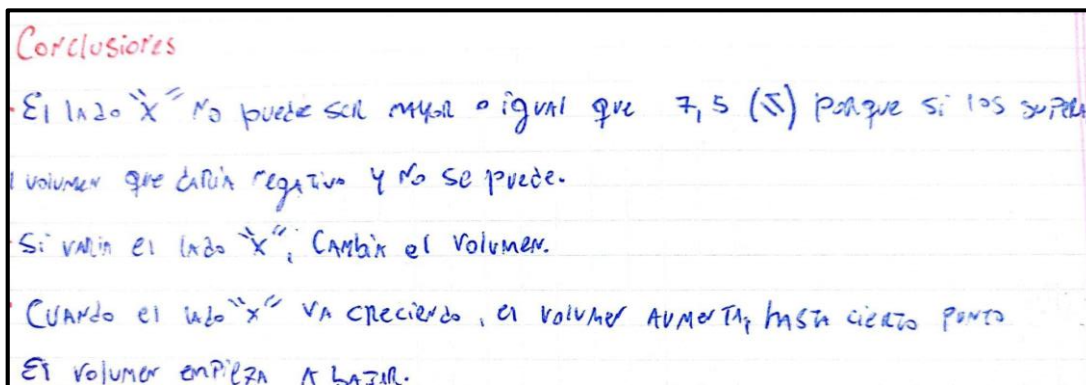 Conclusiones
- El lado "x" no puede ser mayor o igual que 7,5 (≤) porque si los supera
l volumen que daria negativo y no se puede.
- Si varia el lado "x", cambia el volumen.
- Cuando el lado "x" va creciendo, el volumen aumenta, hasta cierto punto
El volumen empieza a bajar.